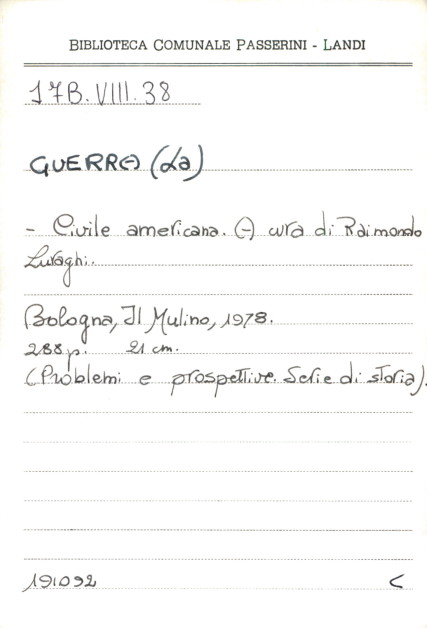 BIBLIOTECA COMUNALE PASSERINI - LANDI
17B.VIII.38
GUERRA (La)
- Civile americana. A cura di Raimondo
Luraghi.
Bologna, Il Mulino, 1978.
288 p. 21 cm.
(Problemi e prospettive. Serie di storia).
191092 <